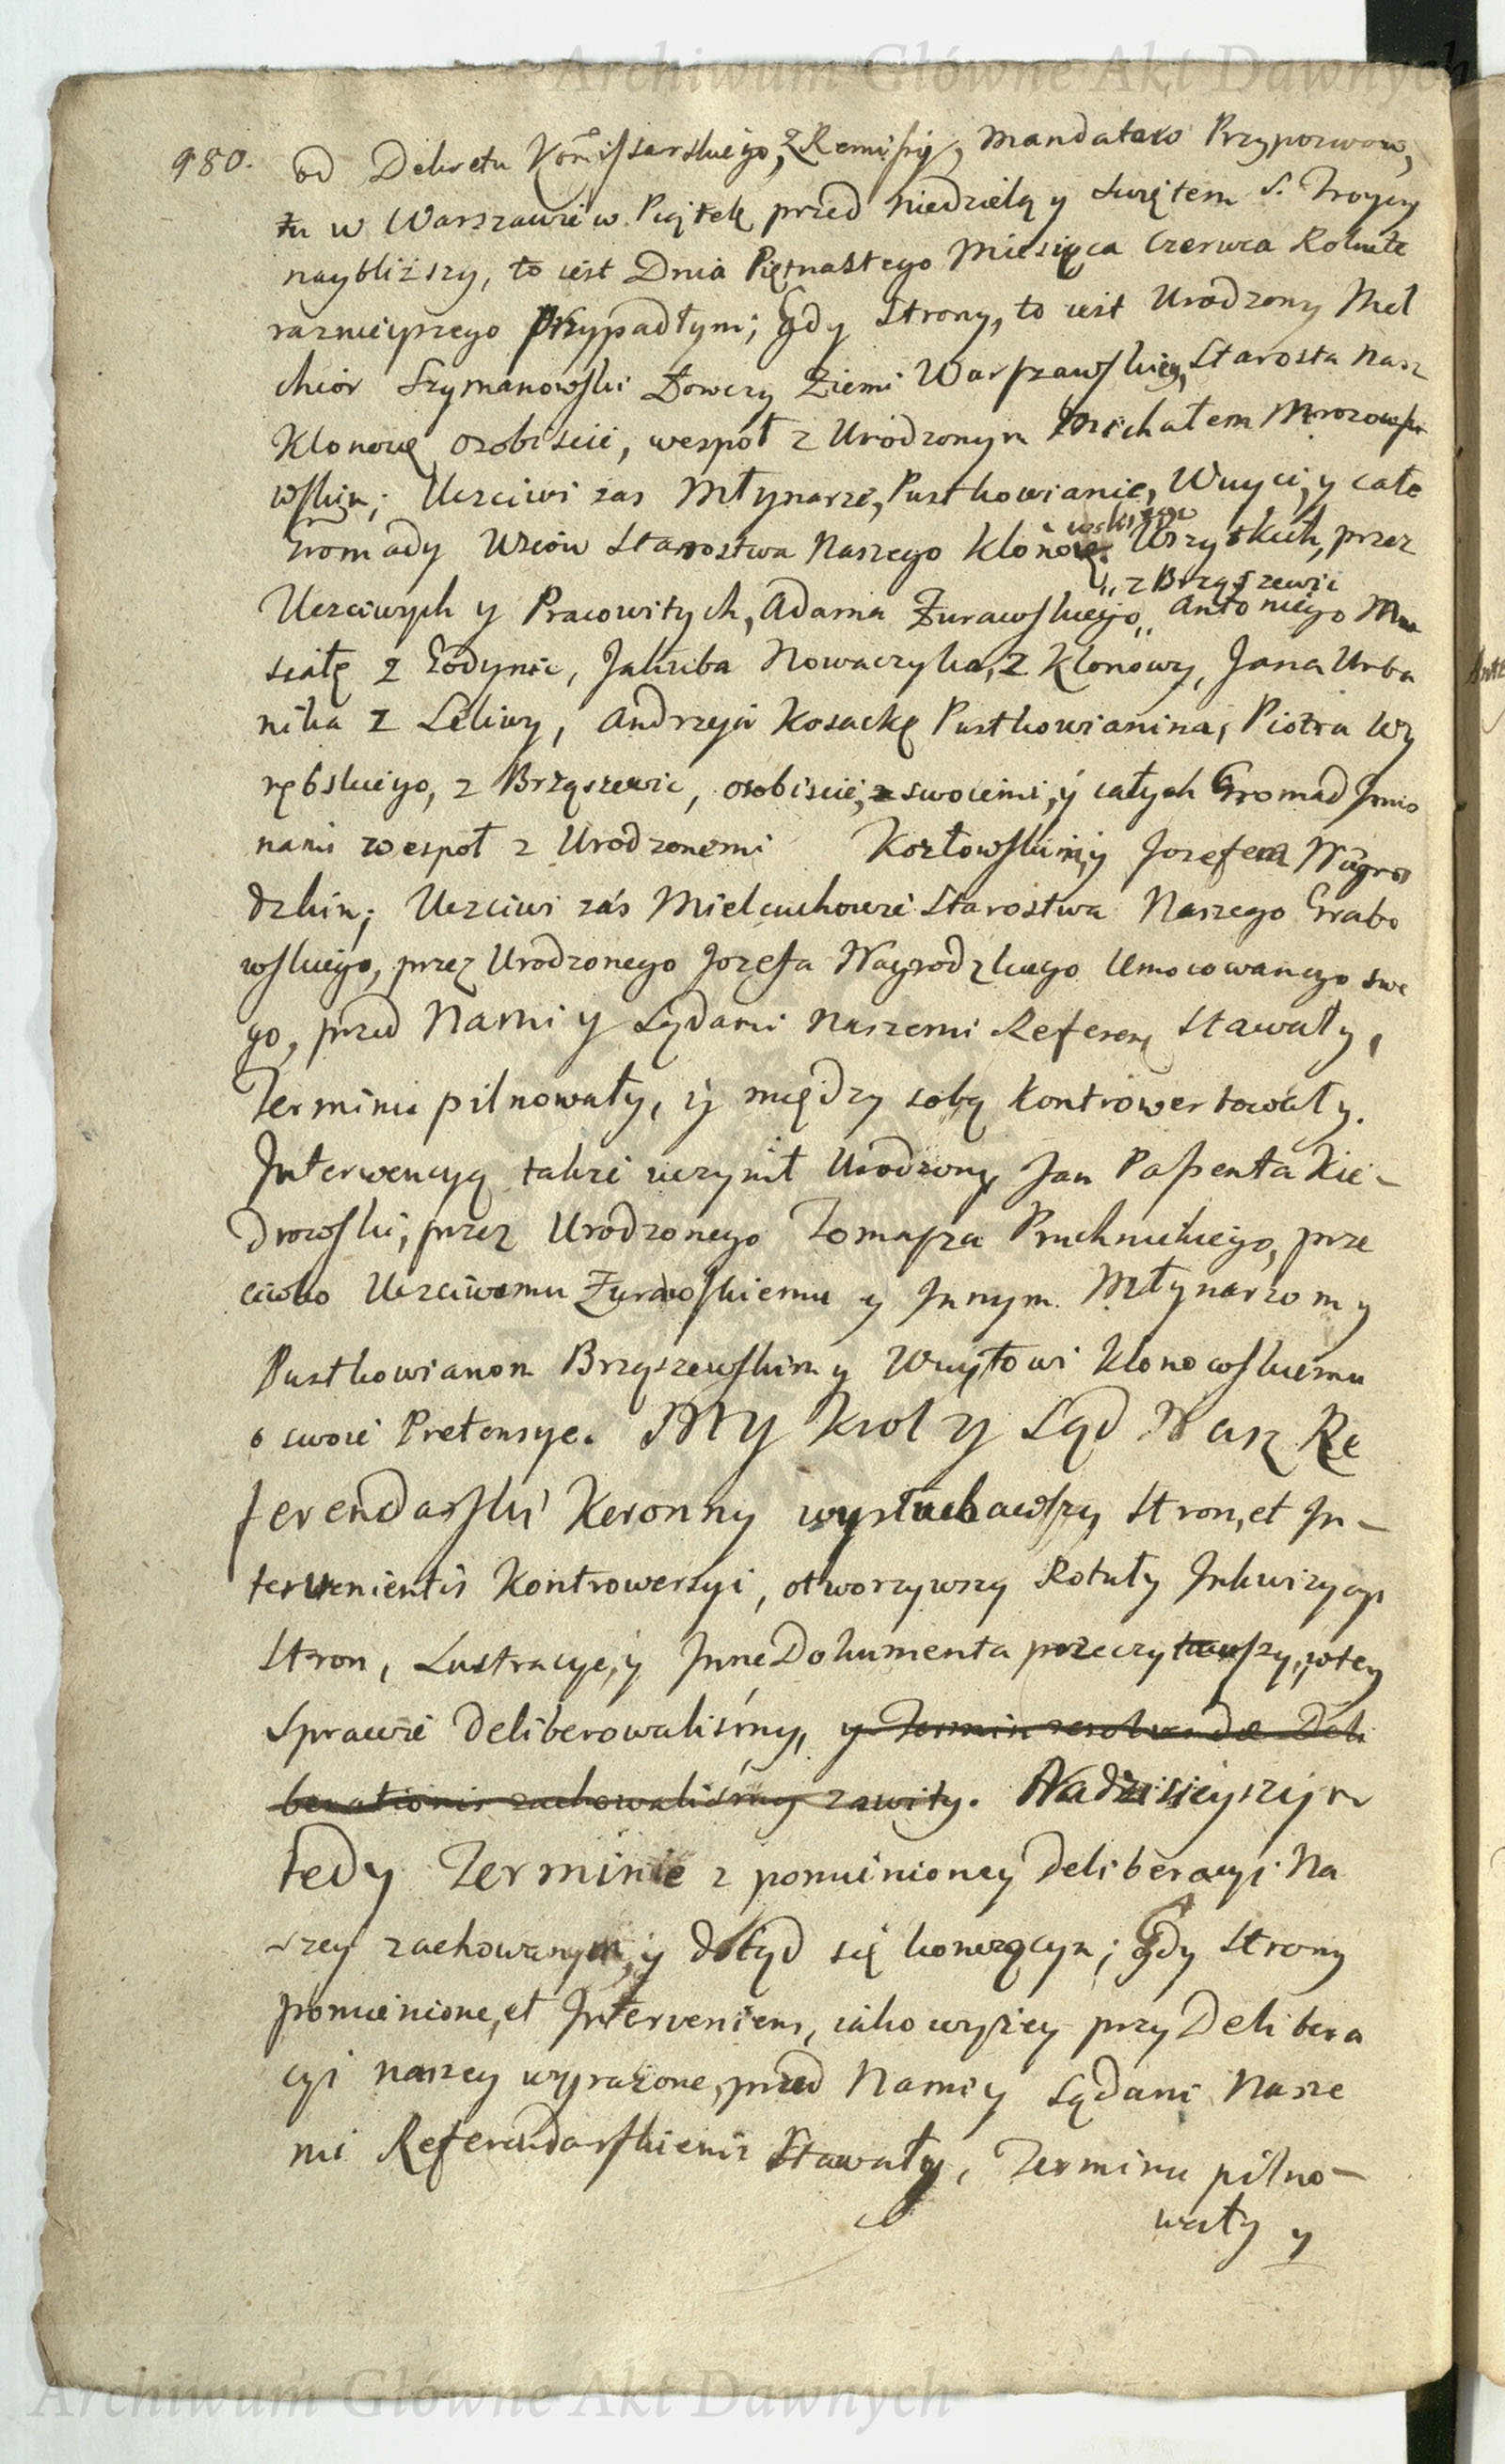 Archiwum Główne Akt Dawnych
980. od Dekretu Kom̃issarskiego, z Remissy, Mandatem Przypozwow,
tu w Warszawie w Piątek przed Niedzielą y Swiętem S. Troycy
naybliższy, to iest Dnia Piętnastego Miesiąca Czerwca Roku te
raznieyszego Przypadłym; Gdy Strony, to iest Urodzony Mel
chior Szymanowski Łowczy Ziemi Warszawskiey, Starosta Nasz
Klonowę osobiscie, wespoł z Urodzonym Michałem
wskim; Uczciwi zas Młynarze, Pustkowianie, Wuyci, y całe
Gromady Wsiow Starostwa Naszego Wszystkich, przez
Uczciwych y Pracowitych, Adama Żurawskiego „ z Brząszewic Antoniego Mu
siałę z Godynic, Jakuba Nowaczyka, z Klonowy, Jana Urba
nika z Leliwy, Andrzeia Kosackę Pustkowianina, Piotra Wy
rębskiego, z Brząszewic, osobiscie, swoiemi, y całych Gromad Jmio
nami wespoł z Urodzonemi Kozłowskim, y Jozefem Nagro
dzkim; Uczciwi zás Mielcuchowie Starostwa Naszego Grabo
wskiego, przez Urodzonego Jozefa Nagrodzkiego Umocowanego swe
go, przed Nami y Sądami Naszemi Referen stawały,
Terminu pilnowały, y między sobą kontrowertowały.
Jnterwencyą także uczynił Urodzony Jan Passenta Kie-
drowski, przez Urodzonego Tomasza Pruchnickiego, prze
ciwko Uczciwemu Żurawskiemu y Jnnym Młynarzom y
Pustkowianom Brząszewskim y Wuytowi Klonowskiemu
o swoie Pretensye. My Krol y Sąd Nasz Re
ferendarski Koronny wysłuchawszy Stron, et Jn-
tervenientis Kontrowersyi, otworzywszy Rotuły Jnkwizycyi
Stron, Lustracye, y Jnne Dokumenta przeczytawszy, w tey
Sprawie deliberowalismy, y Termin resolvendæ Deli
berationis zachowaliśmy zawity. Na dzisieyszym
tedy Terminie z pomienioney Deliberacyi Na
szey zachowanym, y dotąd się konczącym; Gdy Strony
pomienione, et Jnterveniens, iako wyżey przy Delibera
cyi naszey wyrażone, przed Nami y Sądami Nasze
mi Referendarskiemi Stawały, Terminu pilno-
wały y
Archiwum Główne Akt Dawnych